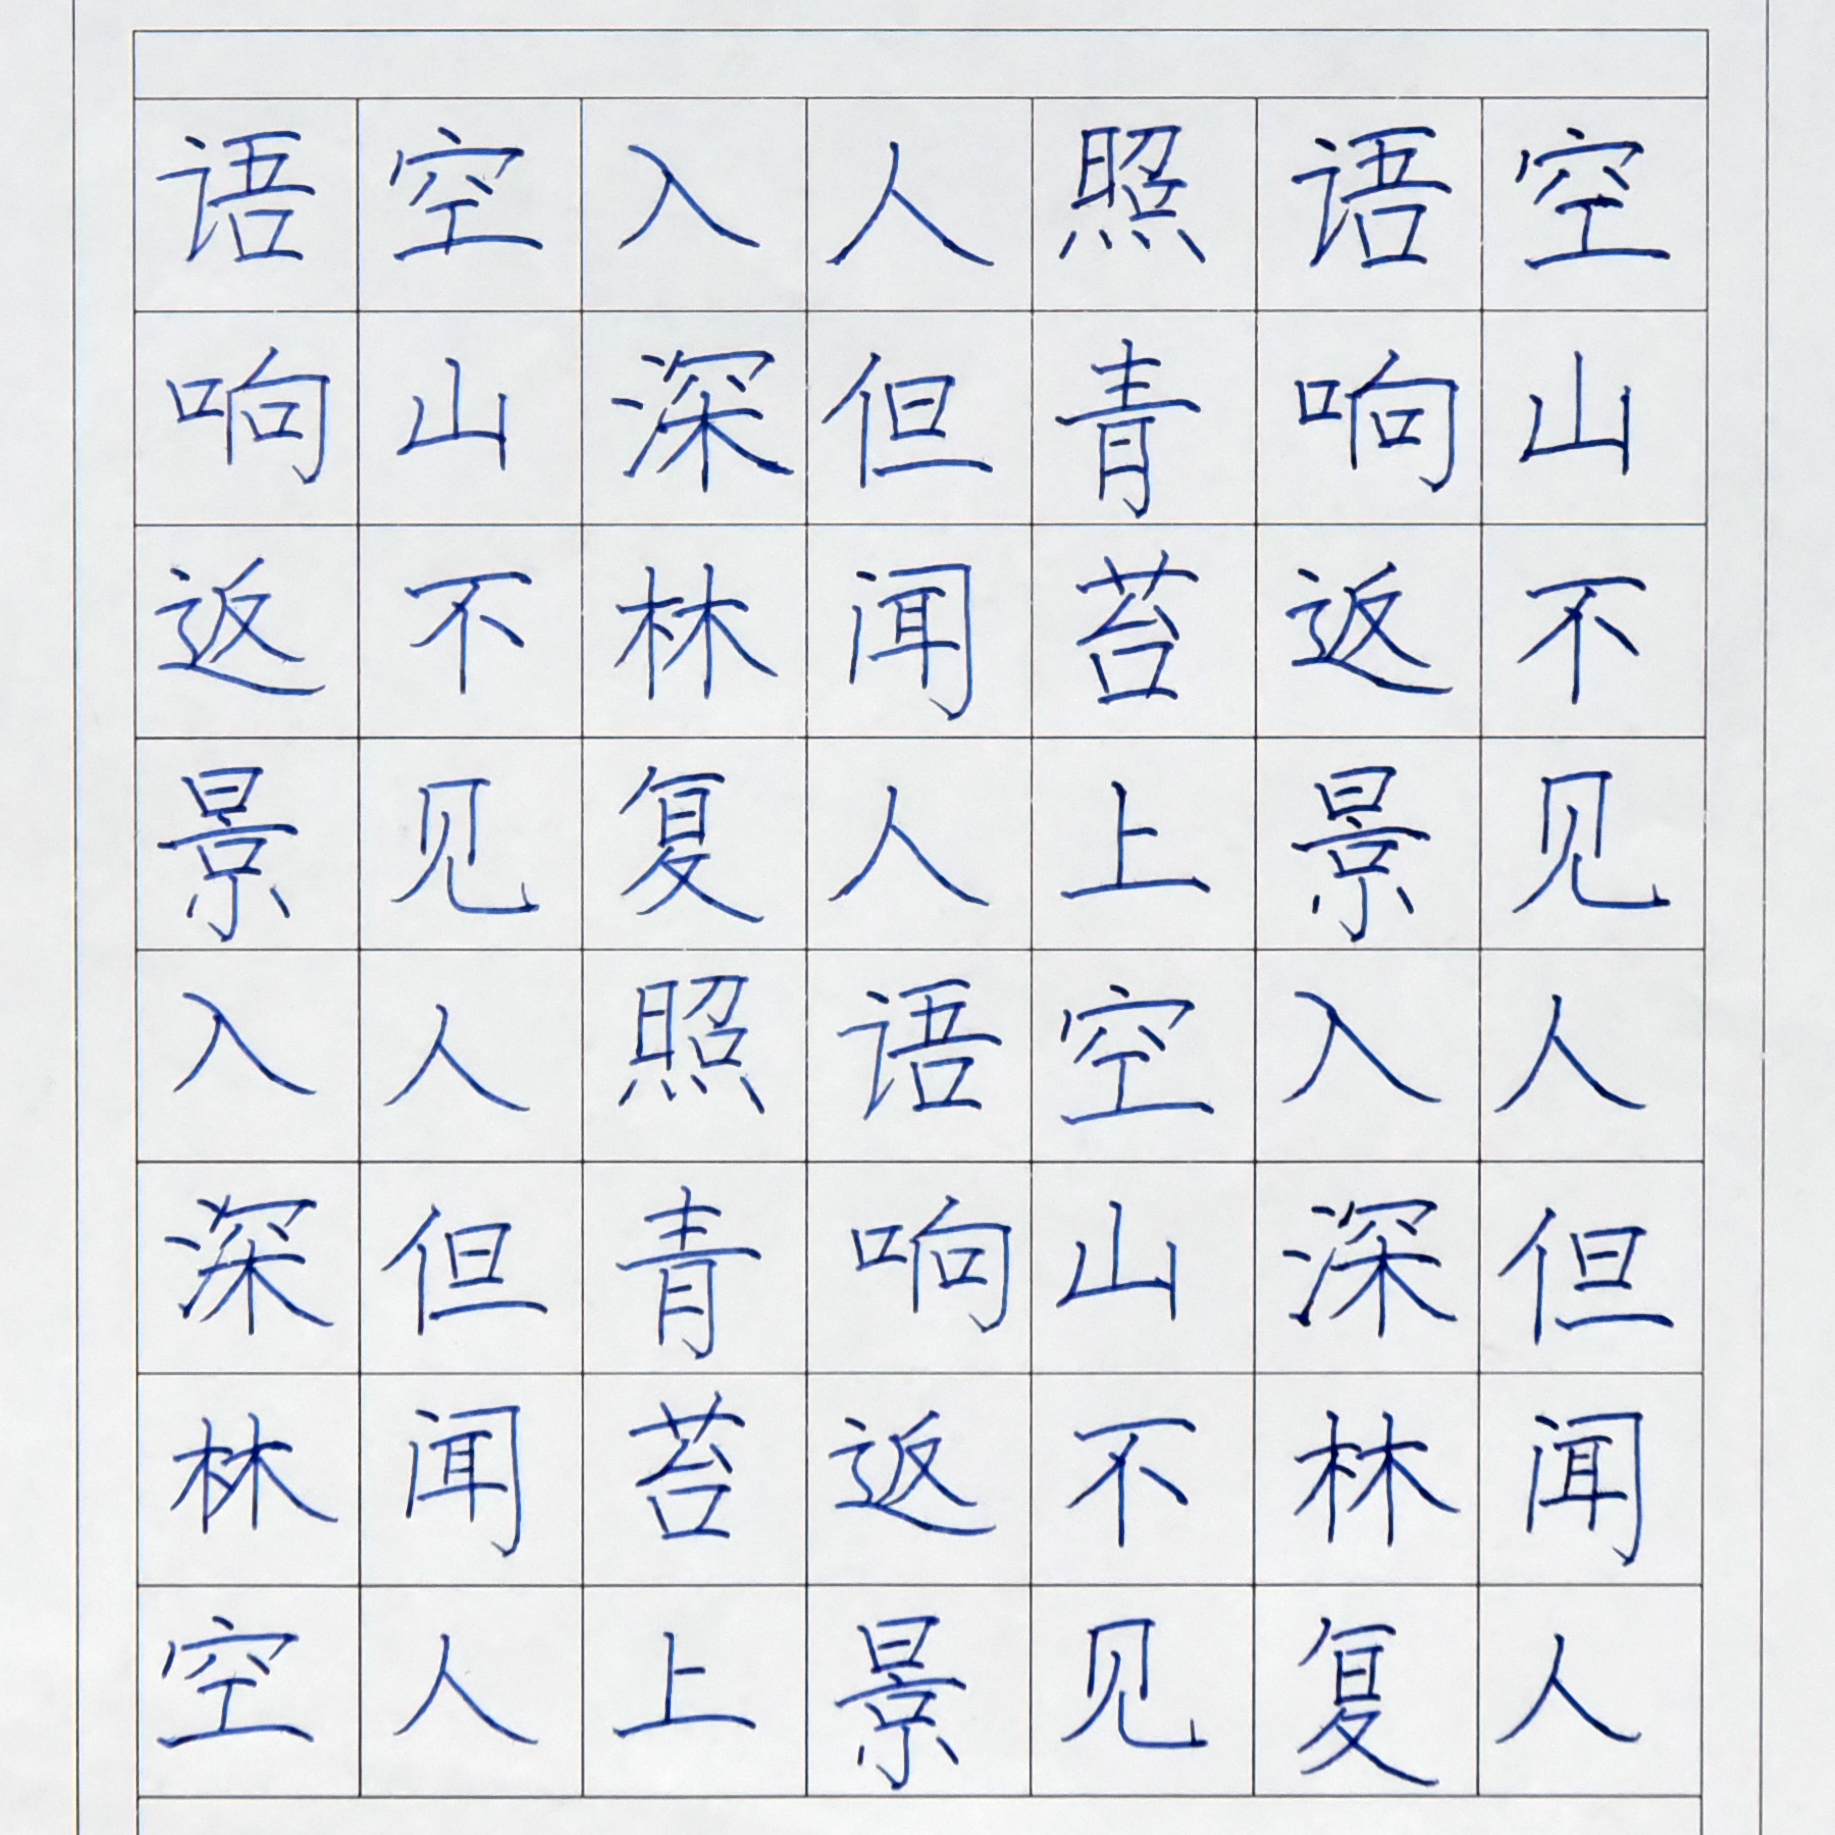 空山不见人但闻人
语响返景入深林复
照青苔上空山不见
人但闻人语响返景
入深林复照青苔上
空山不见人但闻人
语响返景入深林空